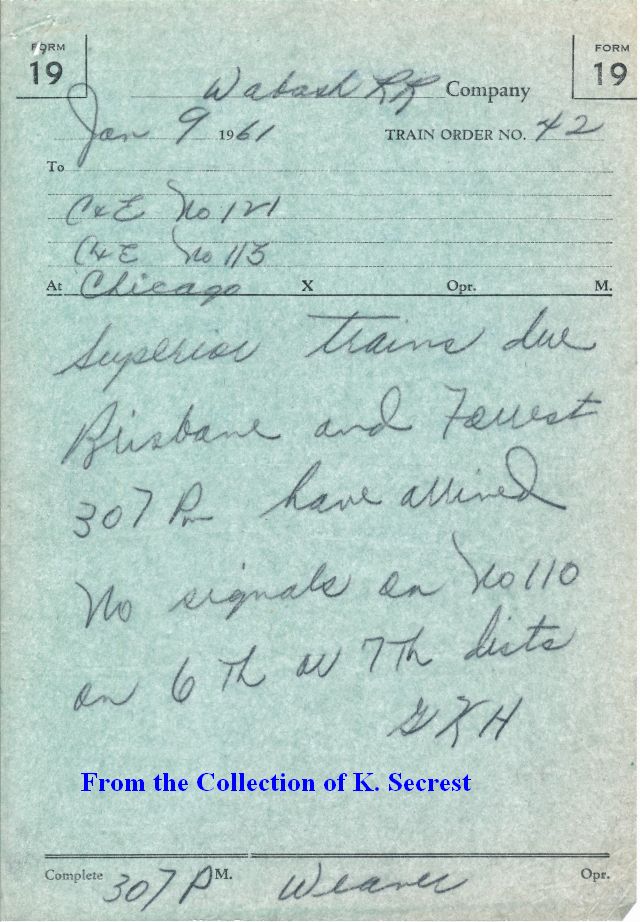 FORM 19 FORM 19
Wabash RR Company
Jan 9 1961 TRAIN ORDER NO. 42
To
C&E No 121
C&E No 113
At Chicago X Opr. M.
Superior trains due
Brisbane and Forrest
307 Pm have arrived
No signals on No 110
on 6 Th or 7 Th dists
GKH
From the Collection of K. Secrest
Complete 307 P M. Weaver Opr.